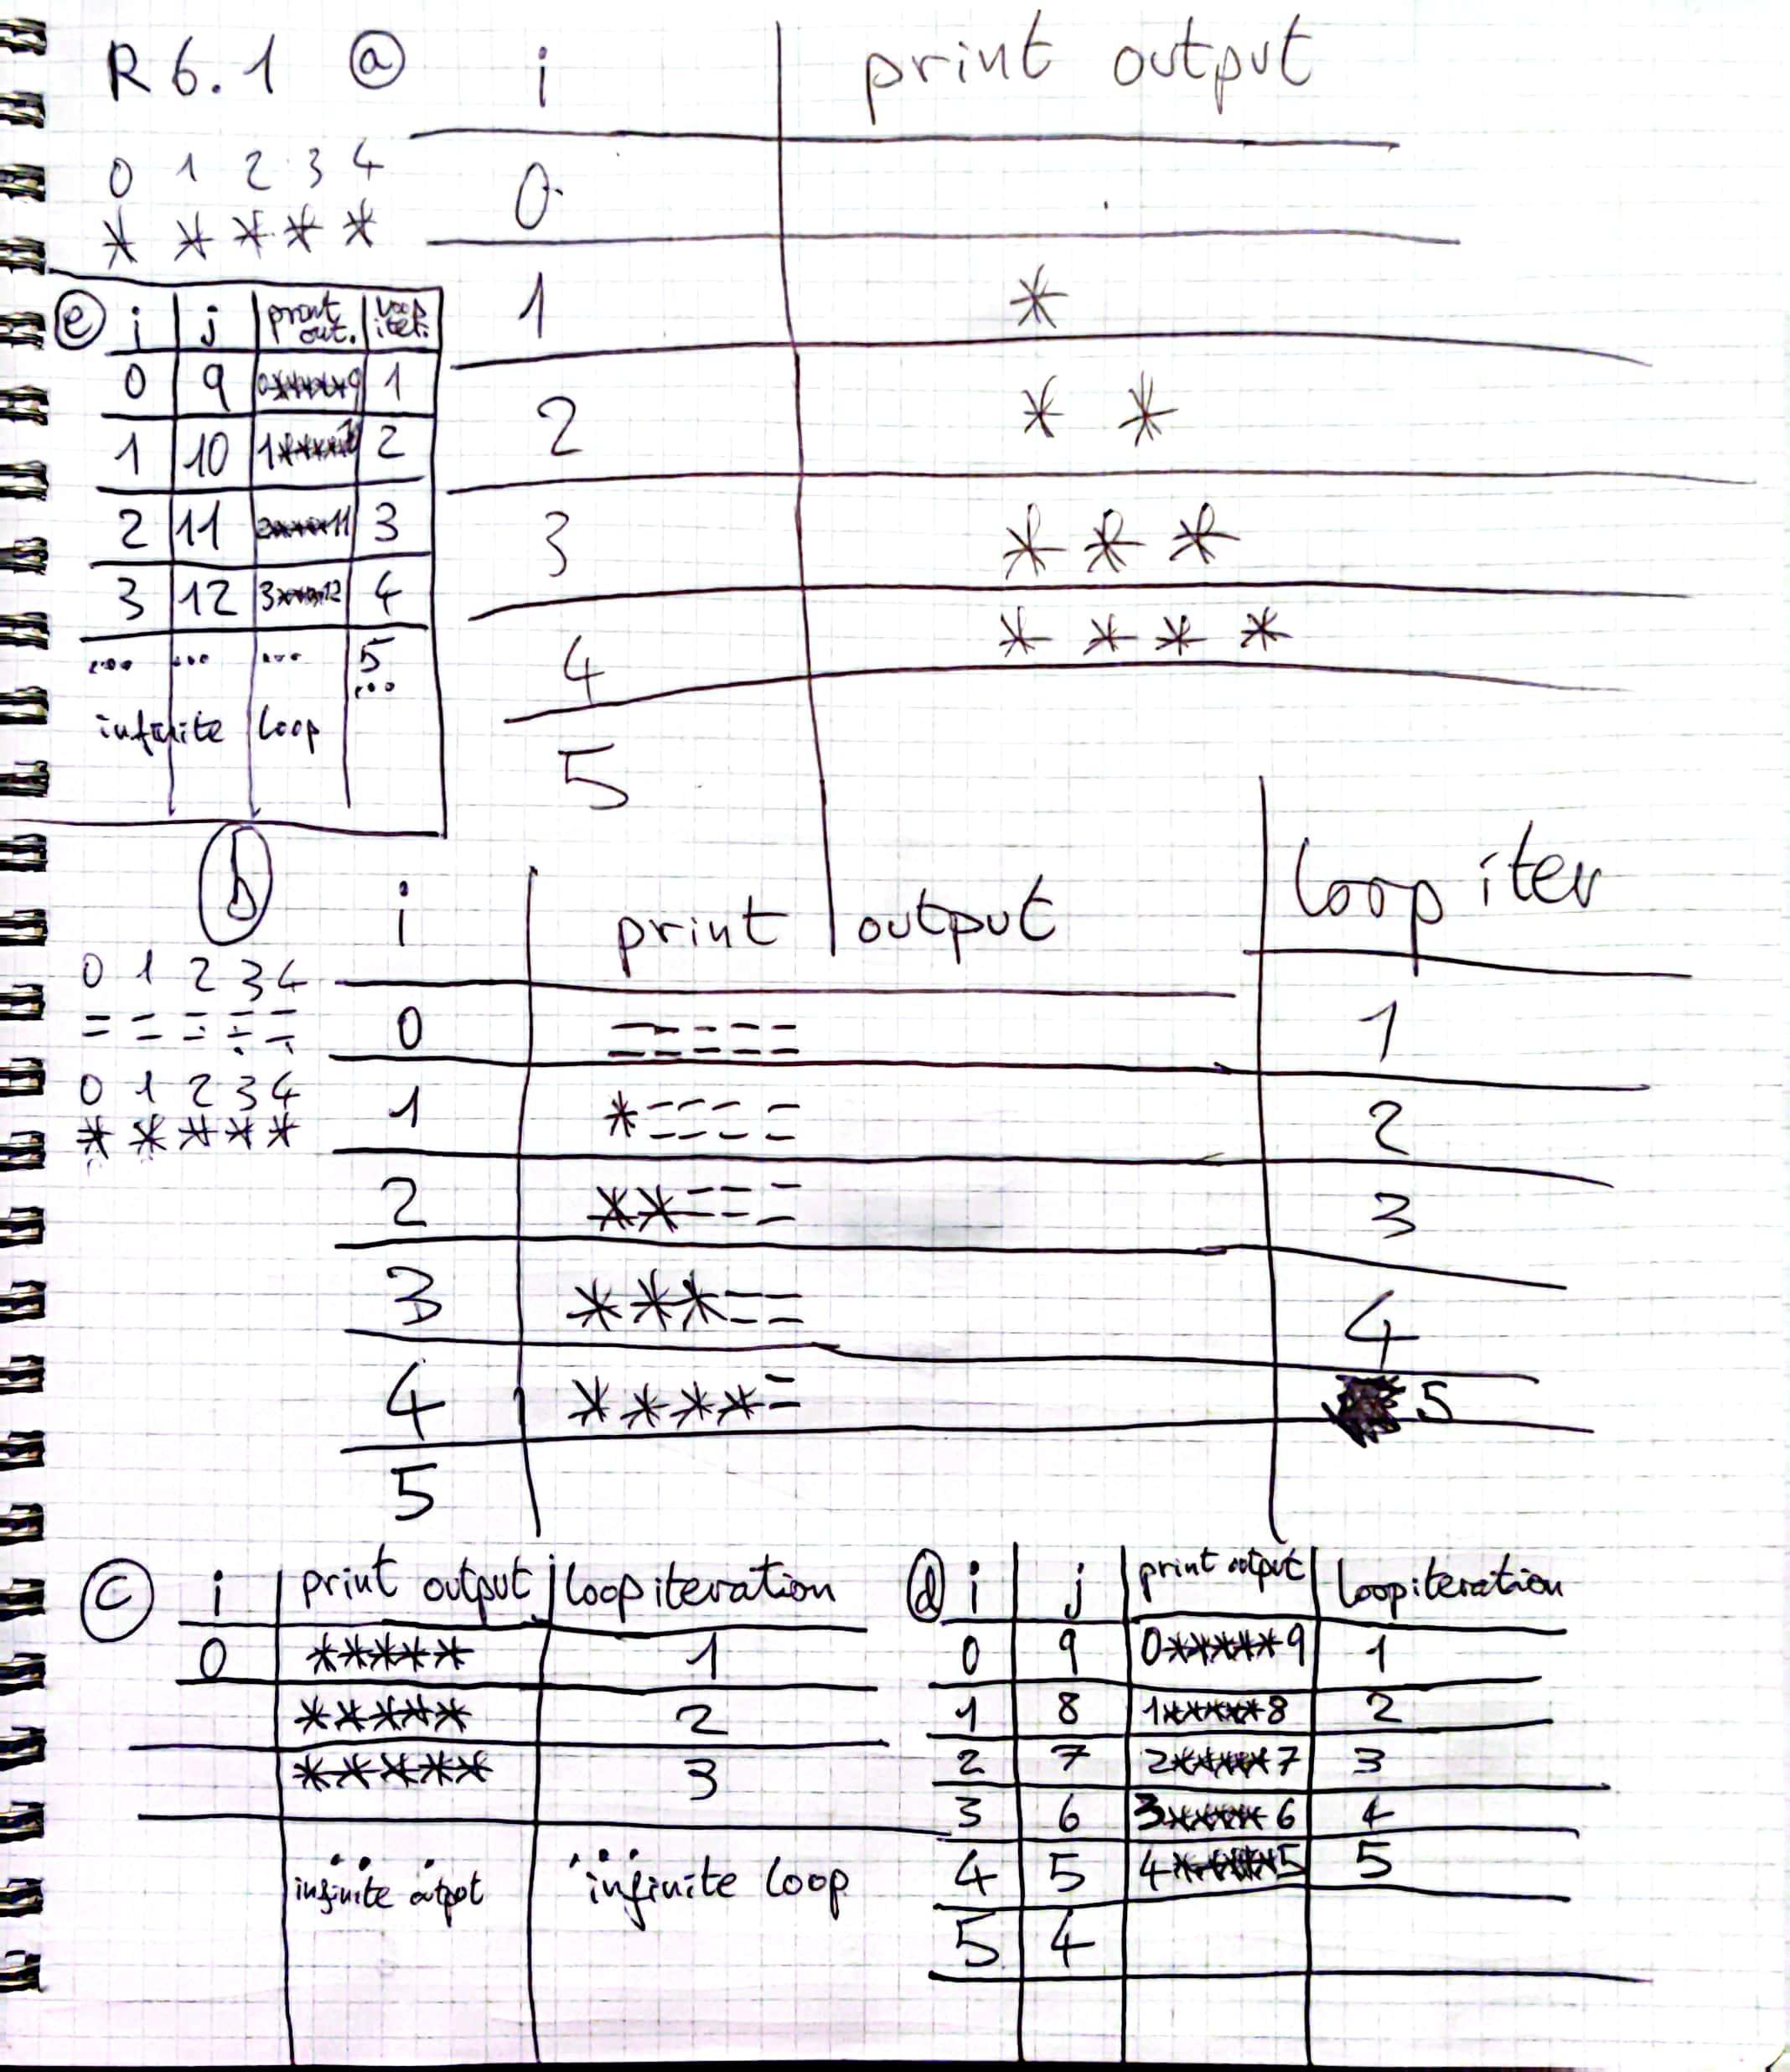 R 6.1 ⓐ i print output
0 1 2 3 4
* * * * *
0
1 *
2 * *
3 * * *
4 * * * *
5
ⓔ i j print out. loop iter.
0 9 0*****9 1
1 10 2
2 11 3
3 12 4
... ... ... 5
...
infinite loop
ⓑ i print output loop iter
0 1 2 3 4
= = = = =
0 1 2 3 4
* * * * *
0 ===== 1
1 *==== 2
2 **=== 3
3 ***== 4
4 ****= 5
5
ⓒ i print output loop iteration
0 ***** 1
***** 2
***** 3
... ...
infinite output infinite loop
ⓓ i j print output loop iteration
0 9 0*****9 1
1 8 1*****8 2
2 7 2*****7 3
3 6 3*****6 4
4 5 4*****5 5
5 4